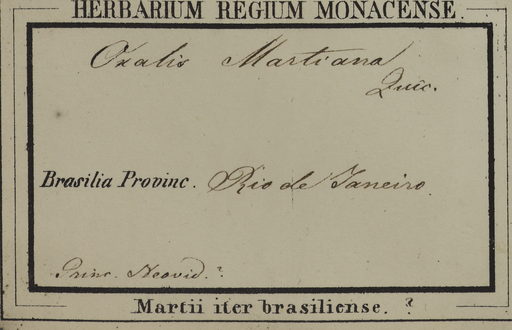 HERBARIUM REGIUM MONACENSE.
Oxalis Martiana
Zucc.
Brasilia Provinc. Rio de Janeiro.
Princ. Neovid.?
Martii iter brasiliense. ?